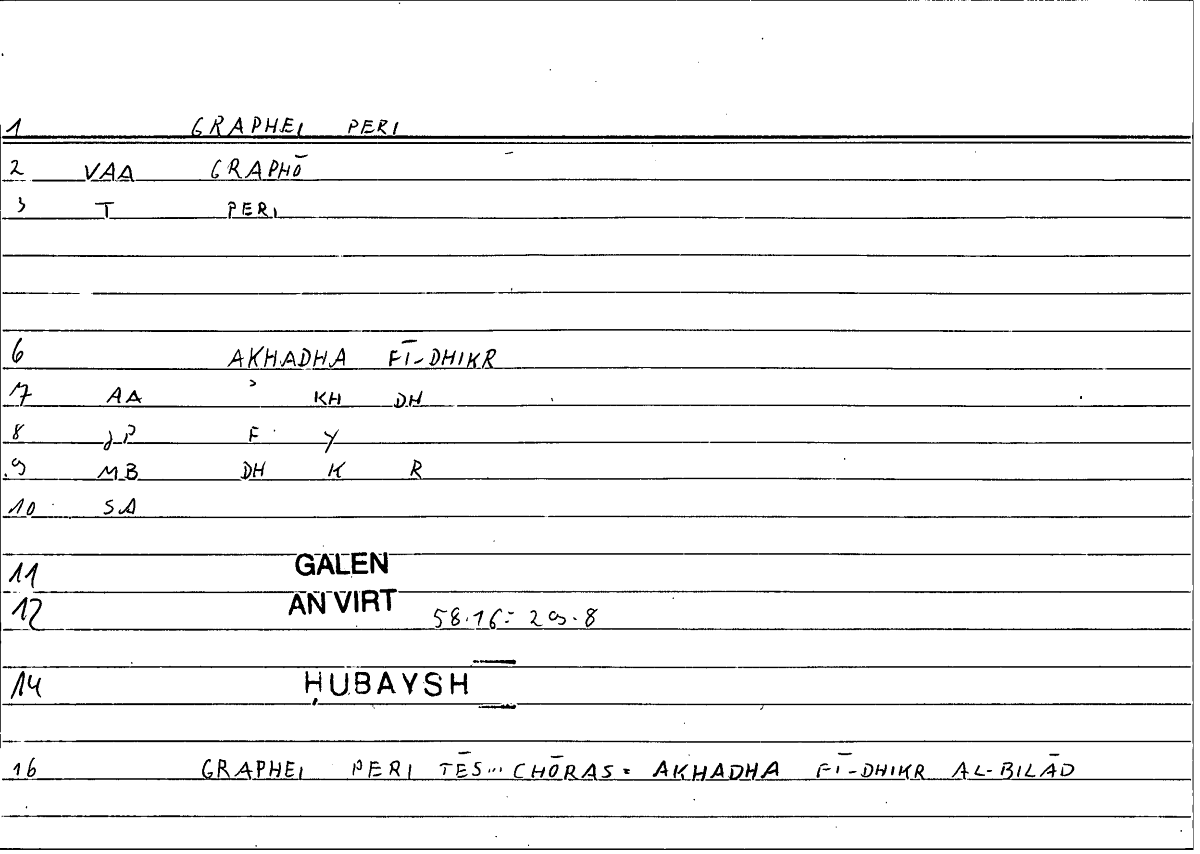 1 GRAPHEI PERI
2 VAA GRAPHŌ
3 T PERI
6 AKHADHA FĪ-DHIKR
7 AA ʾ KH DH
8 JP F Y
9 MB DH K R
10 SA
11 GALEN
12 AN VIRT 58.16 = 29.8
14 ḤUBAYSH
16 GRAPHEI PERI TĒS... CHŌRAS = AKHADHA FĪ-DHIKR AL-BILĀD